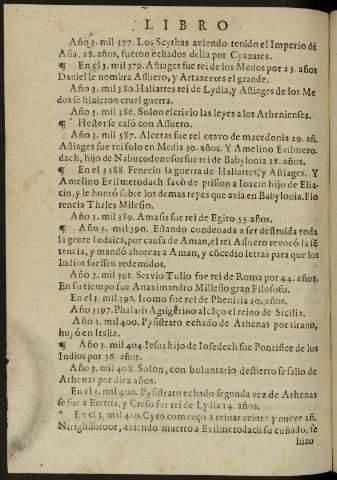 LIBRO
Año 3. mil 377. Los Scythas aviendo tenido el Imperio dē
Asia, 28. años, fueron echados della por Cyaxares.
¶ En el 3. mil 379. Astiages fue rei de los Medos por 25. años
Daniel se nombra Assuero, y Artaxerxes el grande.
Año 3. mil 380. Haliattes rei de Lydia, y Astiages de los Me
dos se hizieron cruel guerra.
Año 3. mil 386. Solon escrivio las leyes a los Athenienses.
¶ Hester se casó con Assuero.
Año 3. mil 387. Alcetas fue rei otavo de macedonia 29. añ.
Astiages fue rei solo en Media 30. años. Y Amelino Evilmero-
dach, hijo de Nabucodonosur fue rei de Babylonia 18. años.
¶ En el 3388. Fenecio la guerra de Haliattes, y Astiages. Y
Amelino Evilmerodach sacò de prision a Ioacin hijo de Elia-
cin, y le honrò sobre los demas reyes que avia en Babylonia. Flo
rencia Thales Milesio.
Año 3. mil 389. Amasis fue rei de Egito 55. años.
¶ Año 3. mil 390. Estando condenada a ser destruida toda
la gente Iudaica, por causa de Aman, el rei Assuero revocò la sē
tencia, y mandó ahorcar a Aman, y cōcedio letras para que los
Iudios fuessen redemidos.
Año 3. mil 391. Servio Tulio fue rei de Roma por 44. años.
En su tiempo fue Anaximandro Millesio gran Filosofo.
En el 3. mil 396. Iromo fue rei de Phenicia 20. años.
Año 3397. Phalaris Agrigētino alcāço el reino de Sicilia.
Año 3. mil 400. Pysistrato echado de Athenas por tirano,
huyó en Italia.
¶ Año 3. mil 404. Iesus hijo de Iosedech fue Pontifice de los
Iudios por 36 años.
Año 3. mil 408. Solon, con boluntario destierro se salio de
Athenas por diez años.
En el 3. mil 400. Pysistrato echado segunda vez de Athenas
se fue a Eretria, y Creso fue rei de Lydia 14. años.
* En el 3. mil 410. Cyro començó a reinar veinte y nueve añ.
Niriglissoroor, aviendo muerto a Evilmerodach su cuñado, se
hizo